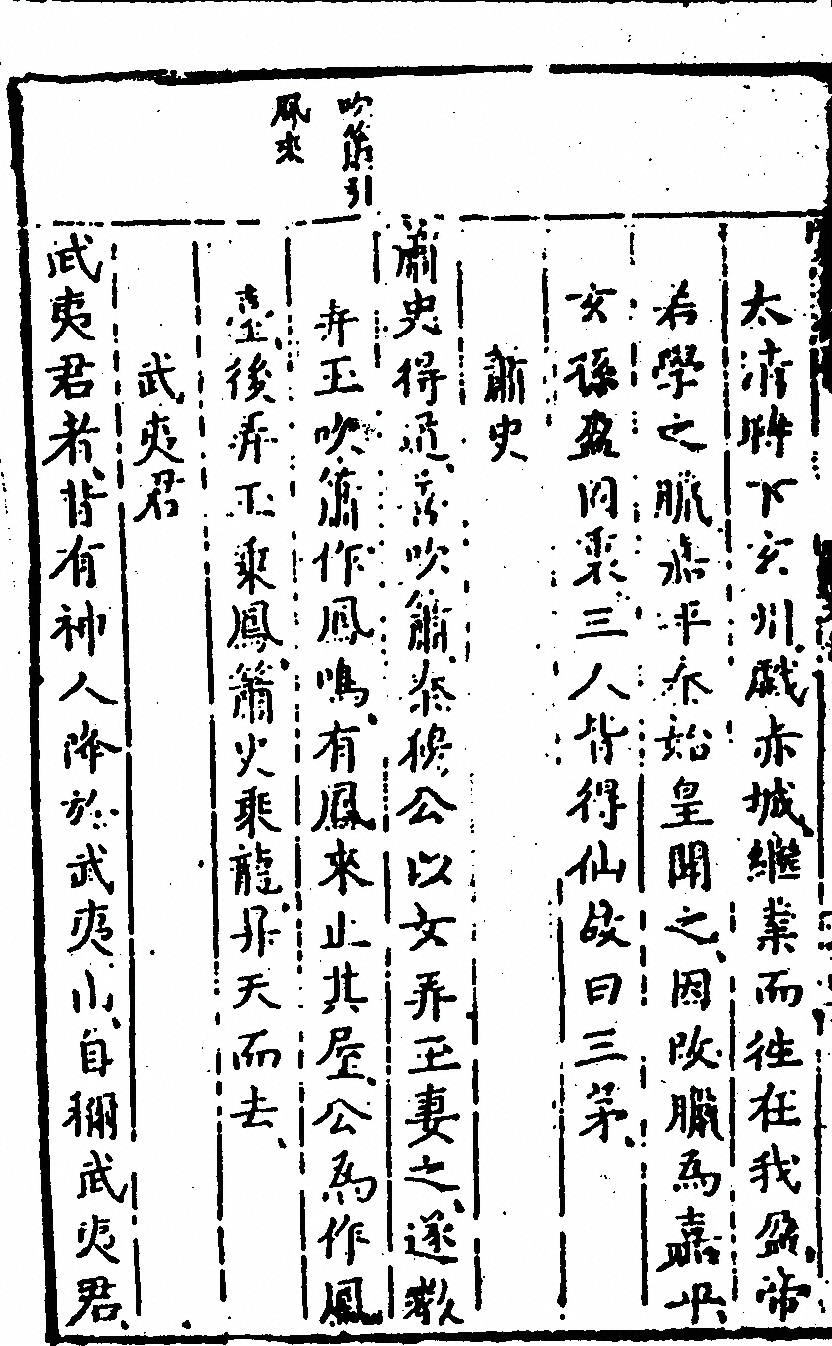 太清時下玄州戲赤城繼業而往在我盈帝
若學之臘嘉平秦始皇聞之因改臘為嘉平
玄孫盈同衷三人皆得仙故曰三茅
蕭史
吹簫引
鳳來
蕭史得道善吹簫秦穆公以女弄玉妻之遂教
弄玉吹簫作鳳鳴有鳳來止其屋公為作鳳
臺後弄玉乘鳳簫史乘龍升天而去
武夷君
武夷君者昔有神人降於武夷山自稱武夷君